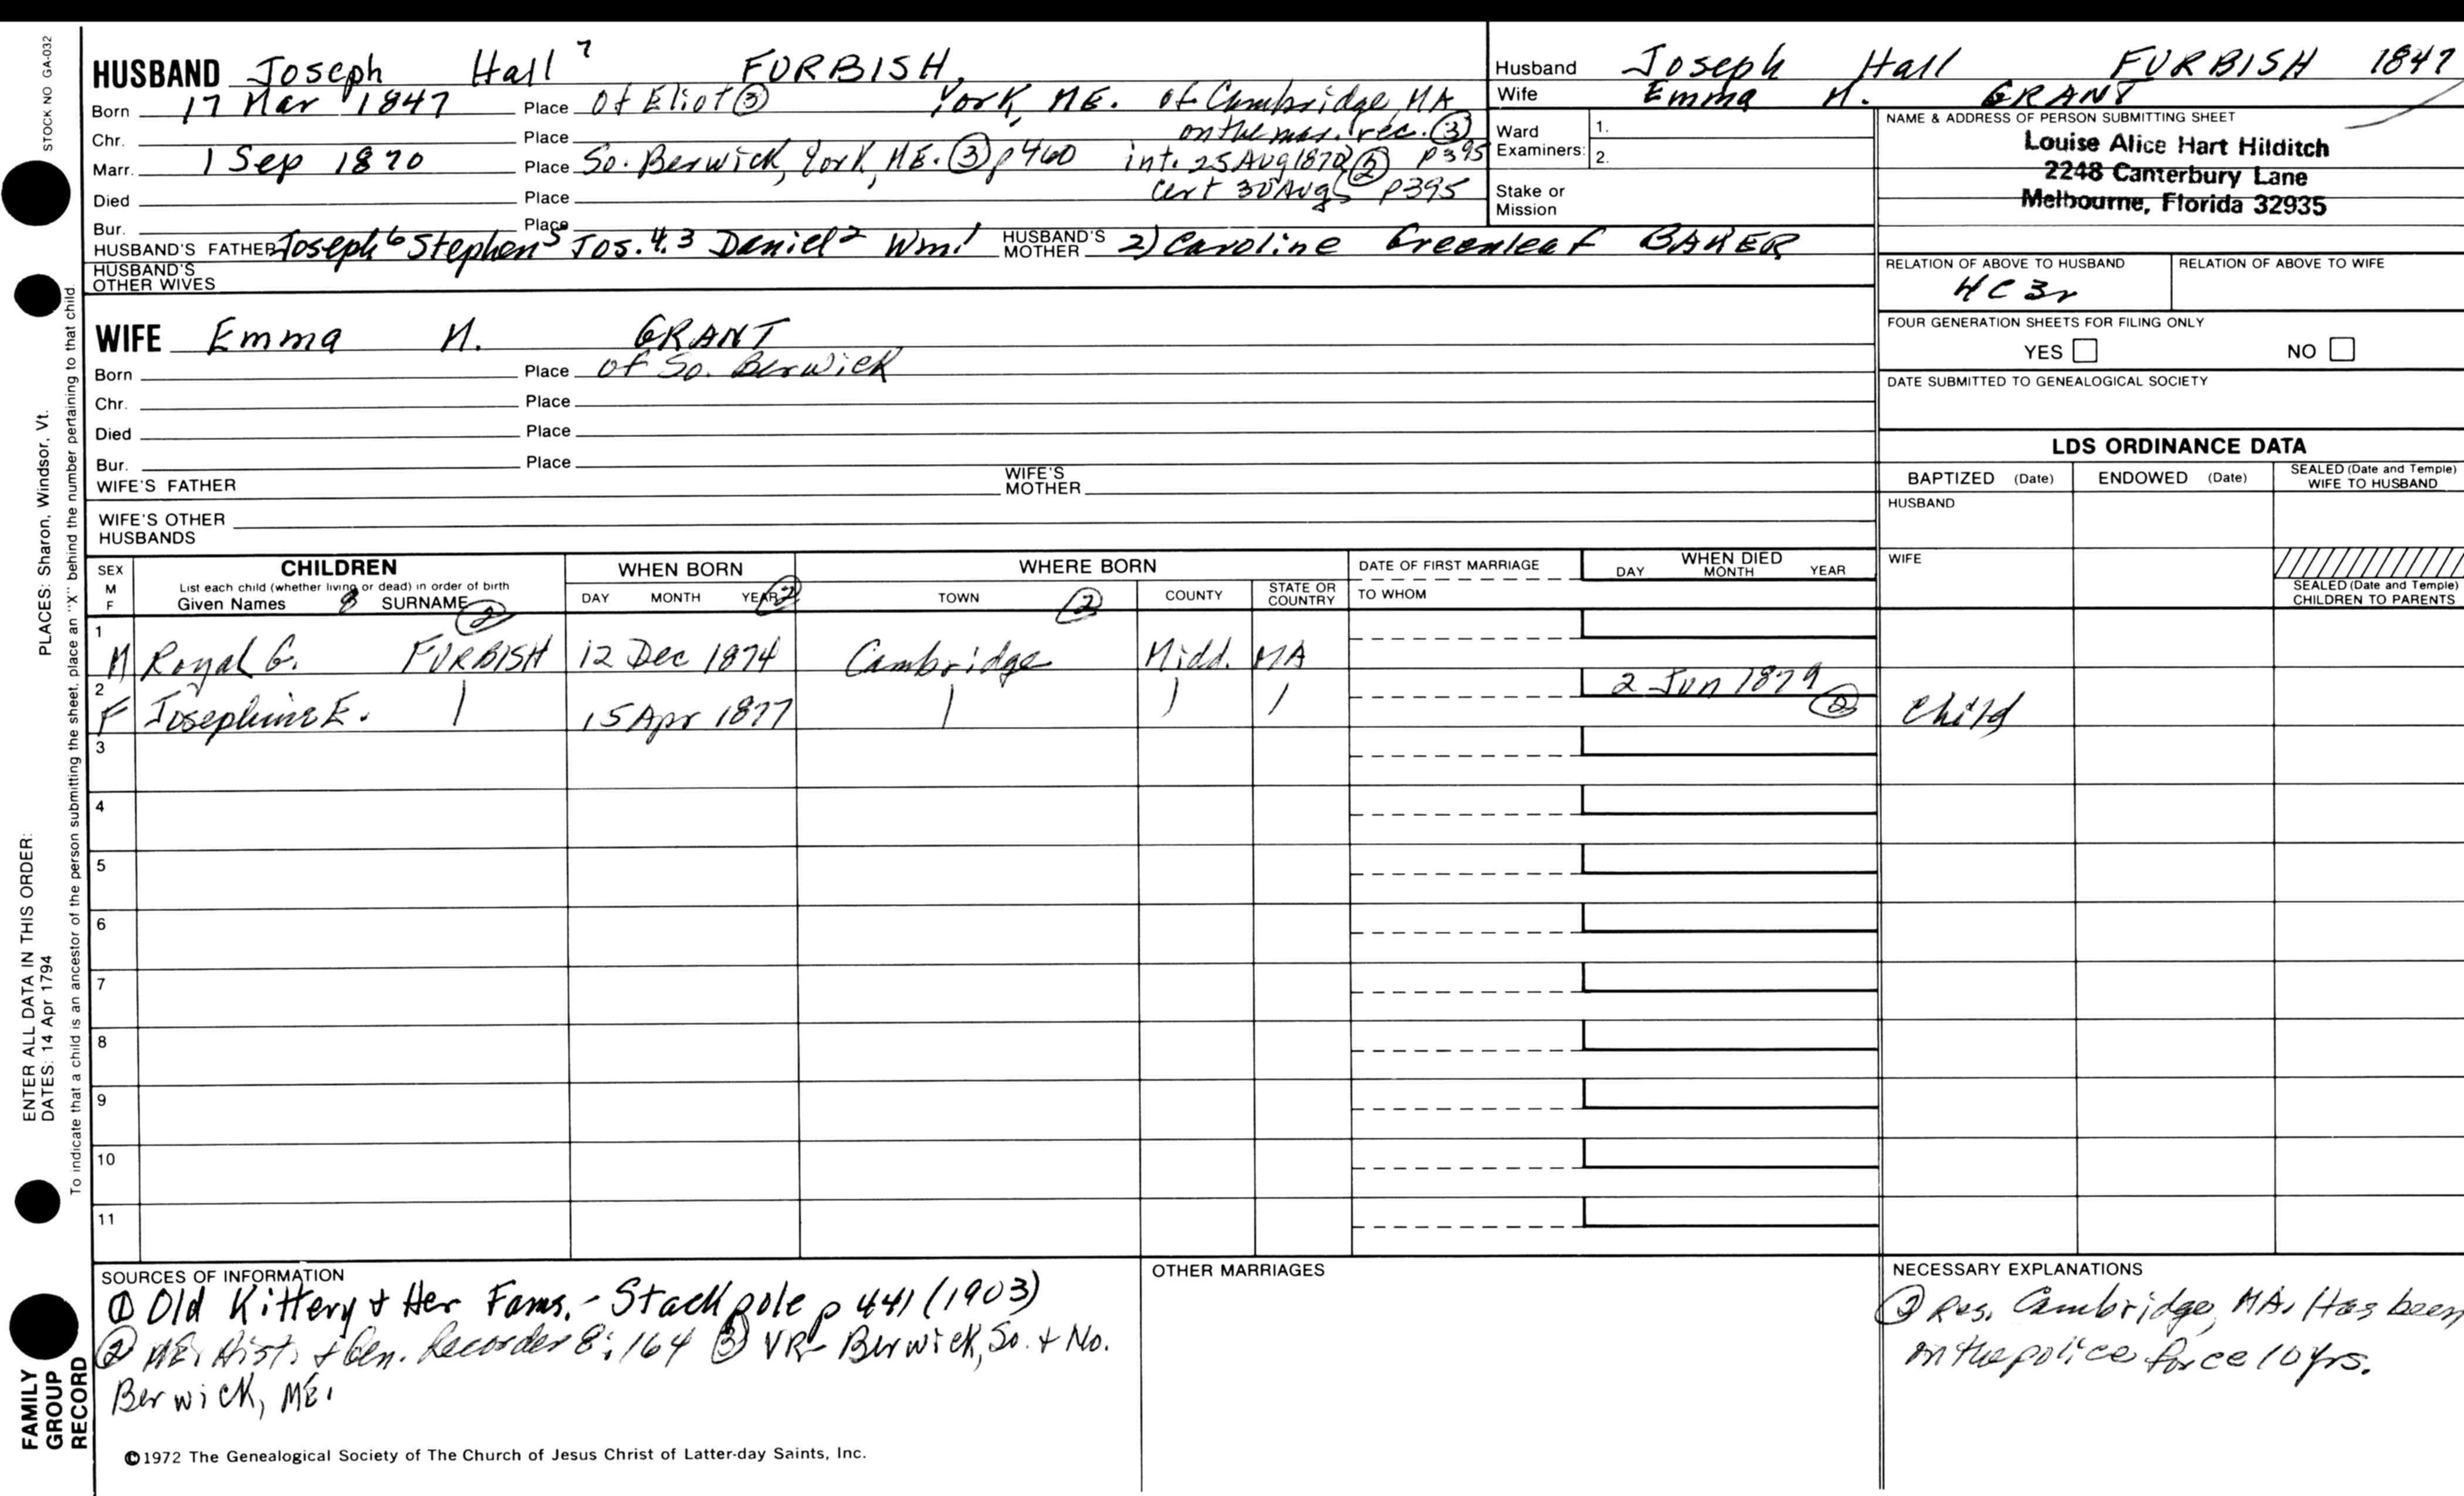 STOCK NO GA-032
HUSBAND Joseph Hall 7 FURBISH
Born 17 Mar 1847 Place Of Eliot ③ York, ME. of Cambridge, MA
Chr. Place on the mar. rec. ③
Marr. 1 Sep 1870 Place So. Berwick, York, ME. ③ p 460 int. 25 Aug 1870 ② p 395
Died Place cert 30 Aug p 395
Bur. Place
HUSBAND'S FATHER Joseph 6 Stephen 5 Jos. 4.3 Daniel 2 Wm 1 HUSBAND'S MOTHER 2) Caroline Greenleaf BAKER
HUSBAND'S OTHER WIVES
WIFE Emma M. GRANT
Born Place of So. Berwick
Chr. Place
Died Place
Bur. Place
WIFE'S FATHER WIFE'S MOTHER
WIFE'S OTHER HUSBANDS
Husband Joseph Hall FURBISH 1847
Wife Emma M. GRANT
Ward Examiners: 1.
2.
Stake or Mission
NAME & ADDRESS OF PERSON SUBMITTING SHEET
Louise Alice Hart Hilditch
2248 Canterbury Lane
Melbourne, Florida 32935
RELATION OF ABOVE TO HUSBAND RELATION OF ABOVE TO WIFE
FOUR GENERATION SHEETS FOR FILING ONLY
YES NO
DATE SUBMITTED TO GENEALOGICAL SOCIETY
LDS ORDINANCE DATA
BAPTIZED (Date) ENDOWED (Date) SEALED (Date and Temple) WIFE TO HUSBAND
HUSBAND
WIFE
SEALED (Date and Temple) CHILDREN TO PARENTS
SEX M F CHILDREN WHEN BORN WHERE BORN DATE OF FIRST MARRIAGE WHEN DIED
List each child (whether living or dead) in order of birth
Given Names 8 SURNAME ② DAY MONTH YEAR ② TOWN ② COUNTY STATE OR COUNTRY TO WHOM DAY MONTH YEAR
1 M Royal G. FURBISH 12 Dec 1874 Cambridge Midd. MA
2 F Josephine E. 15 Apr 1877 2 Jun 1879 ② Child
3
4
5
6
7
8
9
10
11
SOURCES OF INFORMATION
① Old Kittery & Her Fams. - Stackpole p 441 (1903)
② ME. Hist. & Gen. Recorder 8:164 ③ VR - Berwick, So. & No.
Berwick, ME.
OTHER MARRIAGES
NECESSARY EXPLANATIONS
② Res. Cambridge, MA. Has been
on the police force 10 yrs.
©1972 The Genealogical Society of The Church of Jesus Christ of Latter-day Saints, Inc.
PLACES: Sharon, Windsor, Vt.
ENTER ALL DATA IN THIS ORDER:
DATES: 14 Apr 1794
To indicate that a child is an ancestor of the person submitting the sheet, place an "X" behind the number pertaining to that child.
FAMILY
GROUP
RECORD